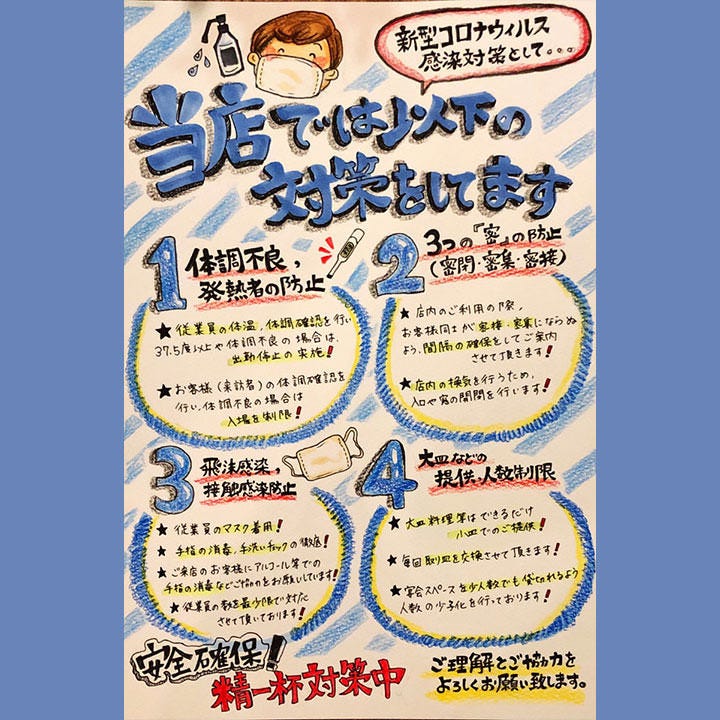 新型コロナウィルス
感染対策として・・・
当店では以下の
対策をしてます
1 体調不良,
発熱者の防止
★従業員の体温,体調確認を行い
37.5度以上や体調不良の場合は、
出勤停止の実施!
★お客様(来訪者)の体調確認を
行い、体調不良の場合は
入場を制限!
2 3つの『密』の防止
(密閉・密集・密接)
★店内のご利用の際、
お客様同士が密接・密集にならぬ
よう、間隔の確保をしてご案内
させて頂きます!
★店内の換気を行うため、
入口や窓の開閉を行います!
3 飛沫感染,
接触感染防止
★従業員のマスク着用!
★手指の消毒,手洗いチェックの徹底!
★ご来店のお客様にアルコール等での
手指の消毒などご協力をお願いしています!
★従業員の数を最少限で対応
させて頂いております!
4 大皿などの
提供・人数制限
★大皿料理等はできるだけ
小皿でのご提供!
★毎回取り皿を交換させて頂きます!
★宴会スペースを少人数でも貸切れるよう
人数の少子化を行っております!
安全確保!
精一杯対策中
ご理解とご協力を
よろしくお願い致します。